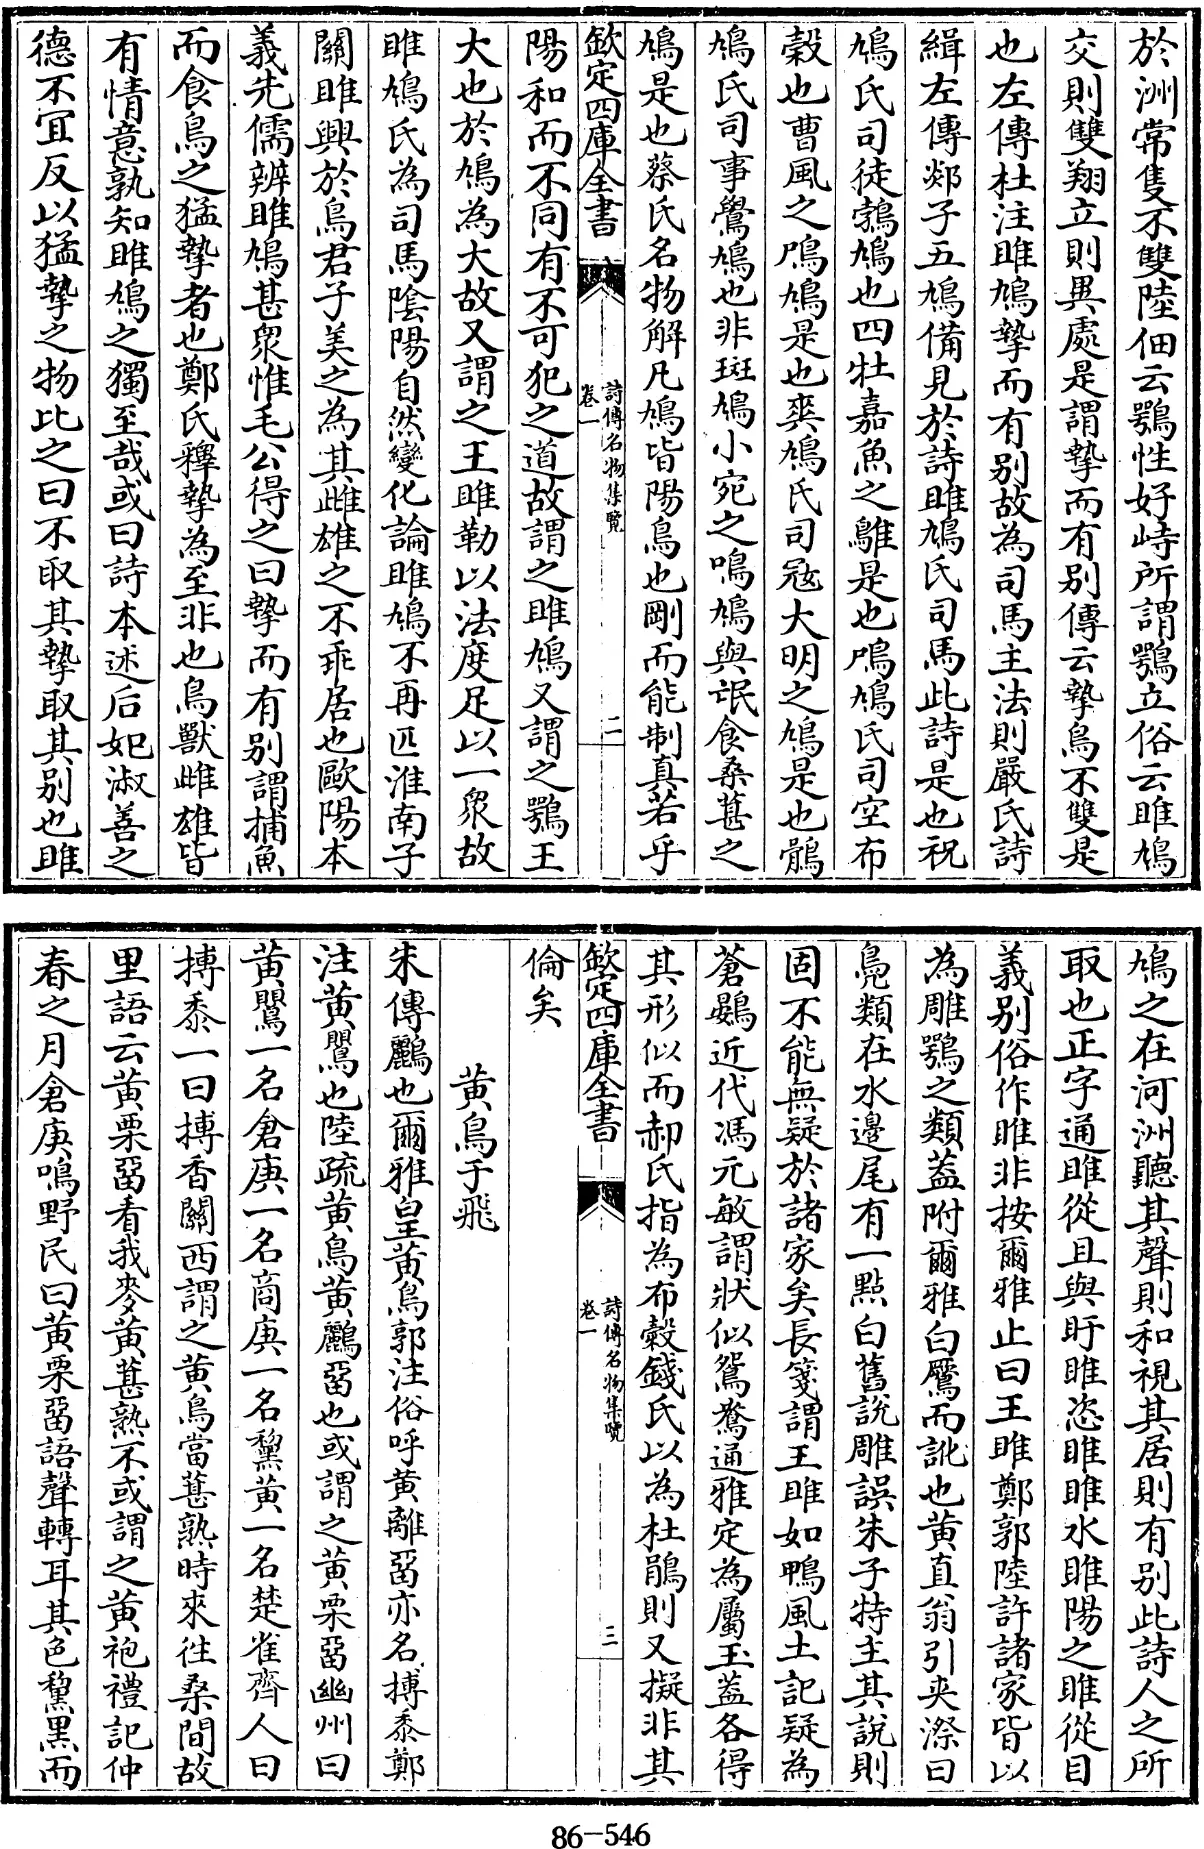 於洲常隻不雙陸佃云鶚性好峙所謂鶚立俗云雎鳩
交則雙翔立則異處是謂摯而有別傳云摯鳥不雙是
也左傳杜注雎鳩摯而有別故為司馬主法則嚴氏詩
緝左傳郯子五鳩備見於詩雎鳩氏司馬此詩是也祝
鳩氏司徒鵓鳩也四牡嘉魚之鵻是也鳲鳩氏司空布
穀也曹風之鳲鳩是也爽鳩氏司寇大明之鳩是也鶻
鳩氏司事鷽鳩也非斑鳩小宛之鳴鳩與氓食桑葚之
鳩是也蔡氏名物解凡鳩皆陽鳥也剛而能制真若乎
欽定四庫全書
詩傳名物集覽
卷一
二
陽和而不同有不可犯之道故謂之雎鳩又謂之鶚王
大也於鳩為大故又謂之王雎勒以法度足以一衆故
雎鳩氏為司馬陰陽自然變化論雎鳩不再匹淮南子
關雎興於鳥君子美之為其雌雄之不乖居也歐陽本
義先儒辨雎鳩甚衆惟毛公得之曰摯而有別謂捕魚
而食鳥之猛摯者也鄭氏釋摯為至非也鳥獸雌雄皆
有情意孰知雎鳩之獨至哉或曰詩本述后妃淑善之
德不宜反以猛摯之物比之曰不取其摯取其別也雎
鳩之在河洲聽其聲則和視其居則有別此詩人之所
取也正字通雎從且與盱睢恣睢睢水睢陽之睢從目
義別俗作睢非按爾雅止曰王雎鄭郭陸許諸家皆以
為雕鶚之類葢附爾雅白鷹而訛也黄直翁引夾漈曰
鳧類在水邊尾有一點白舊說雕誤朱子特主其說則
固不能無疑於諸家矣長箋謂王雎如鴨風土記疑為
蒼鷃近代馮元敏謂狀似鴛鴦通雅定為屬玉葢各得
其形似而郝氏指為布穀錢氏以為杜鵑則又擬非其
欽定四庫全書
詩傳名物集覽
卷一
三
倫矣
黄鳥于飛
朱傳鸝也爾雅皇黄鳥郭注俗呼黄離留亦名搏黍鄭
注黄鸎也陸疏黄鳥黄鸝留也或謂之黄栗留幽州曰
黄鸎一名倉庚一名商庚一名鵹黄一名楚雀齊人曰
搏黍一曰搏香關西謂之黄鳥當葚熟時來往桑間故
里語云黄栗留看我麥黄葚熟不或謂之黄袍禮記仲
春之月倉庚鳴野民曰黄栗留語聲轉耳其色鵹黑而
86-546